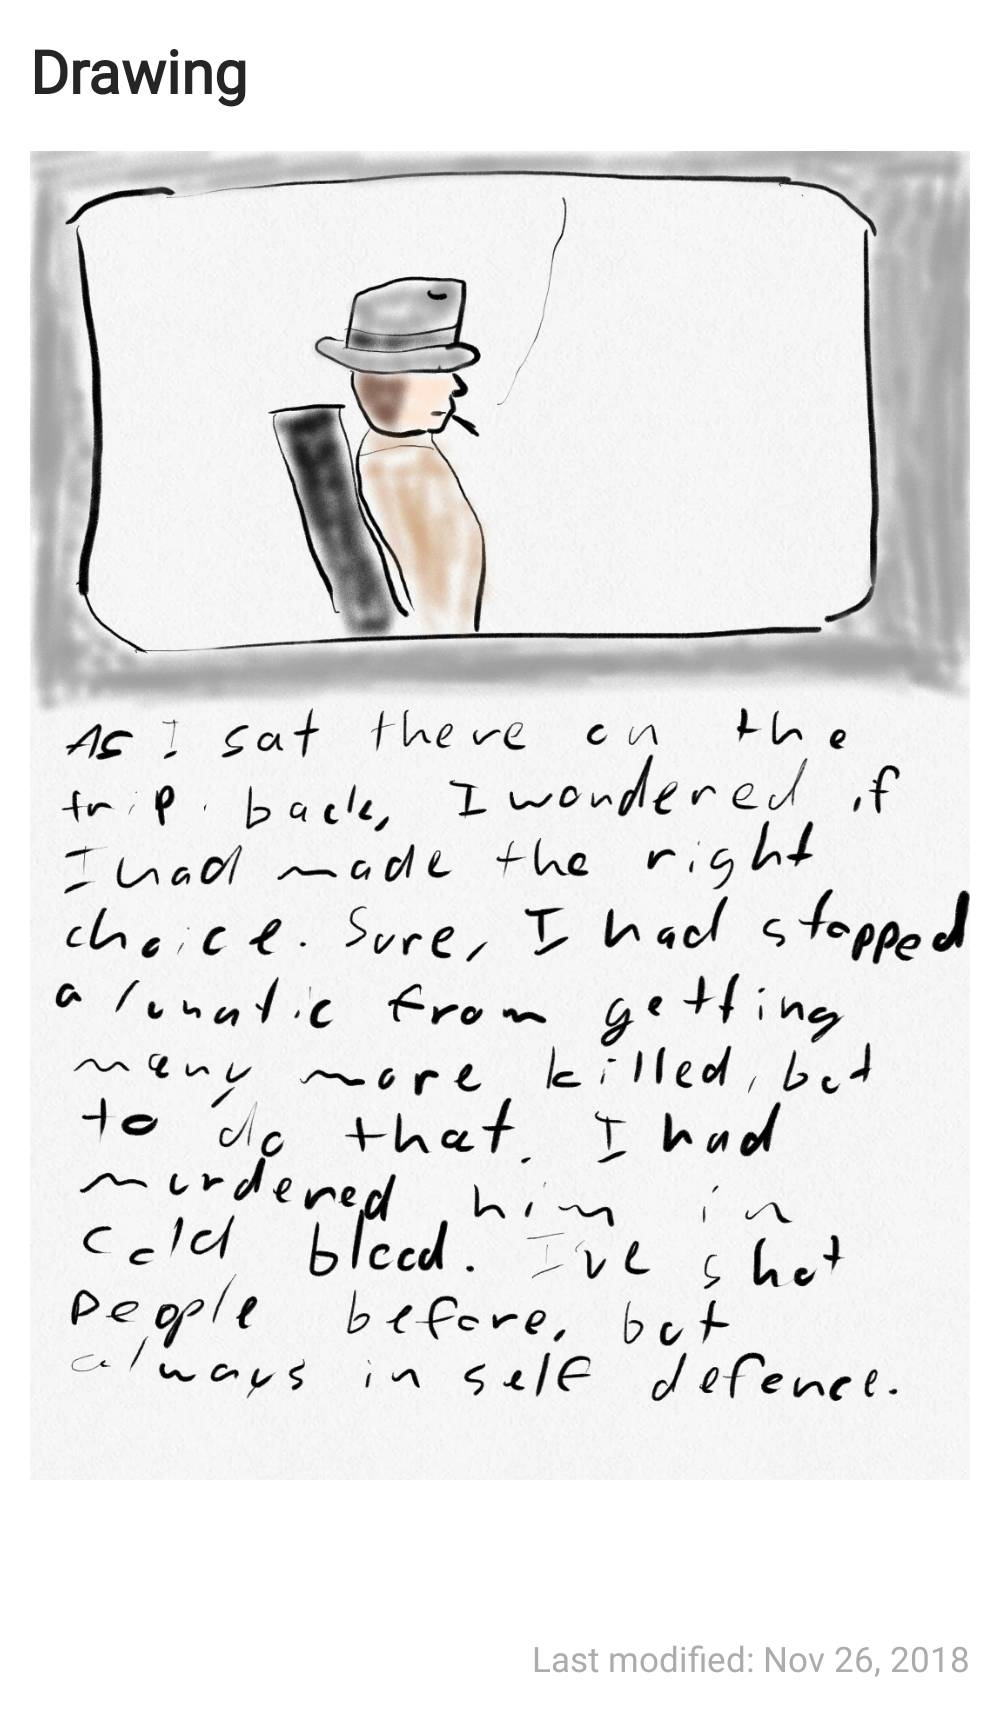 Drawing
As I sat there on the
trip back, I wondered if
I had made the right
choice. Sure, I had stopped
a lunatic from getting
many more killed, but
to do that, I had
murdered him in
cold blood. I've shot
people before, but
always in self defence.
Last modified: Nov 26, 2018